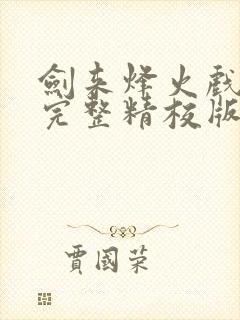 劍来烽火戲
完整精校版
賈國荣